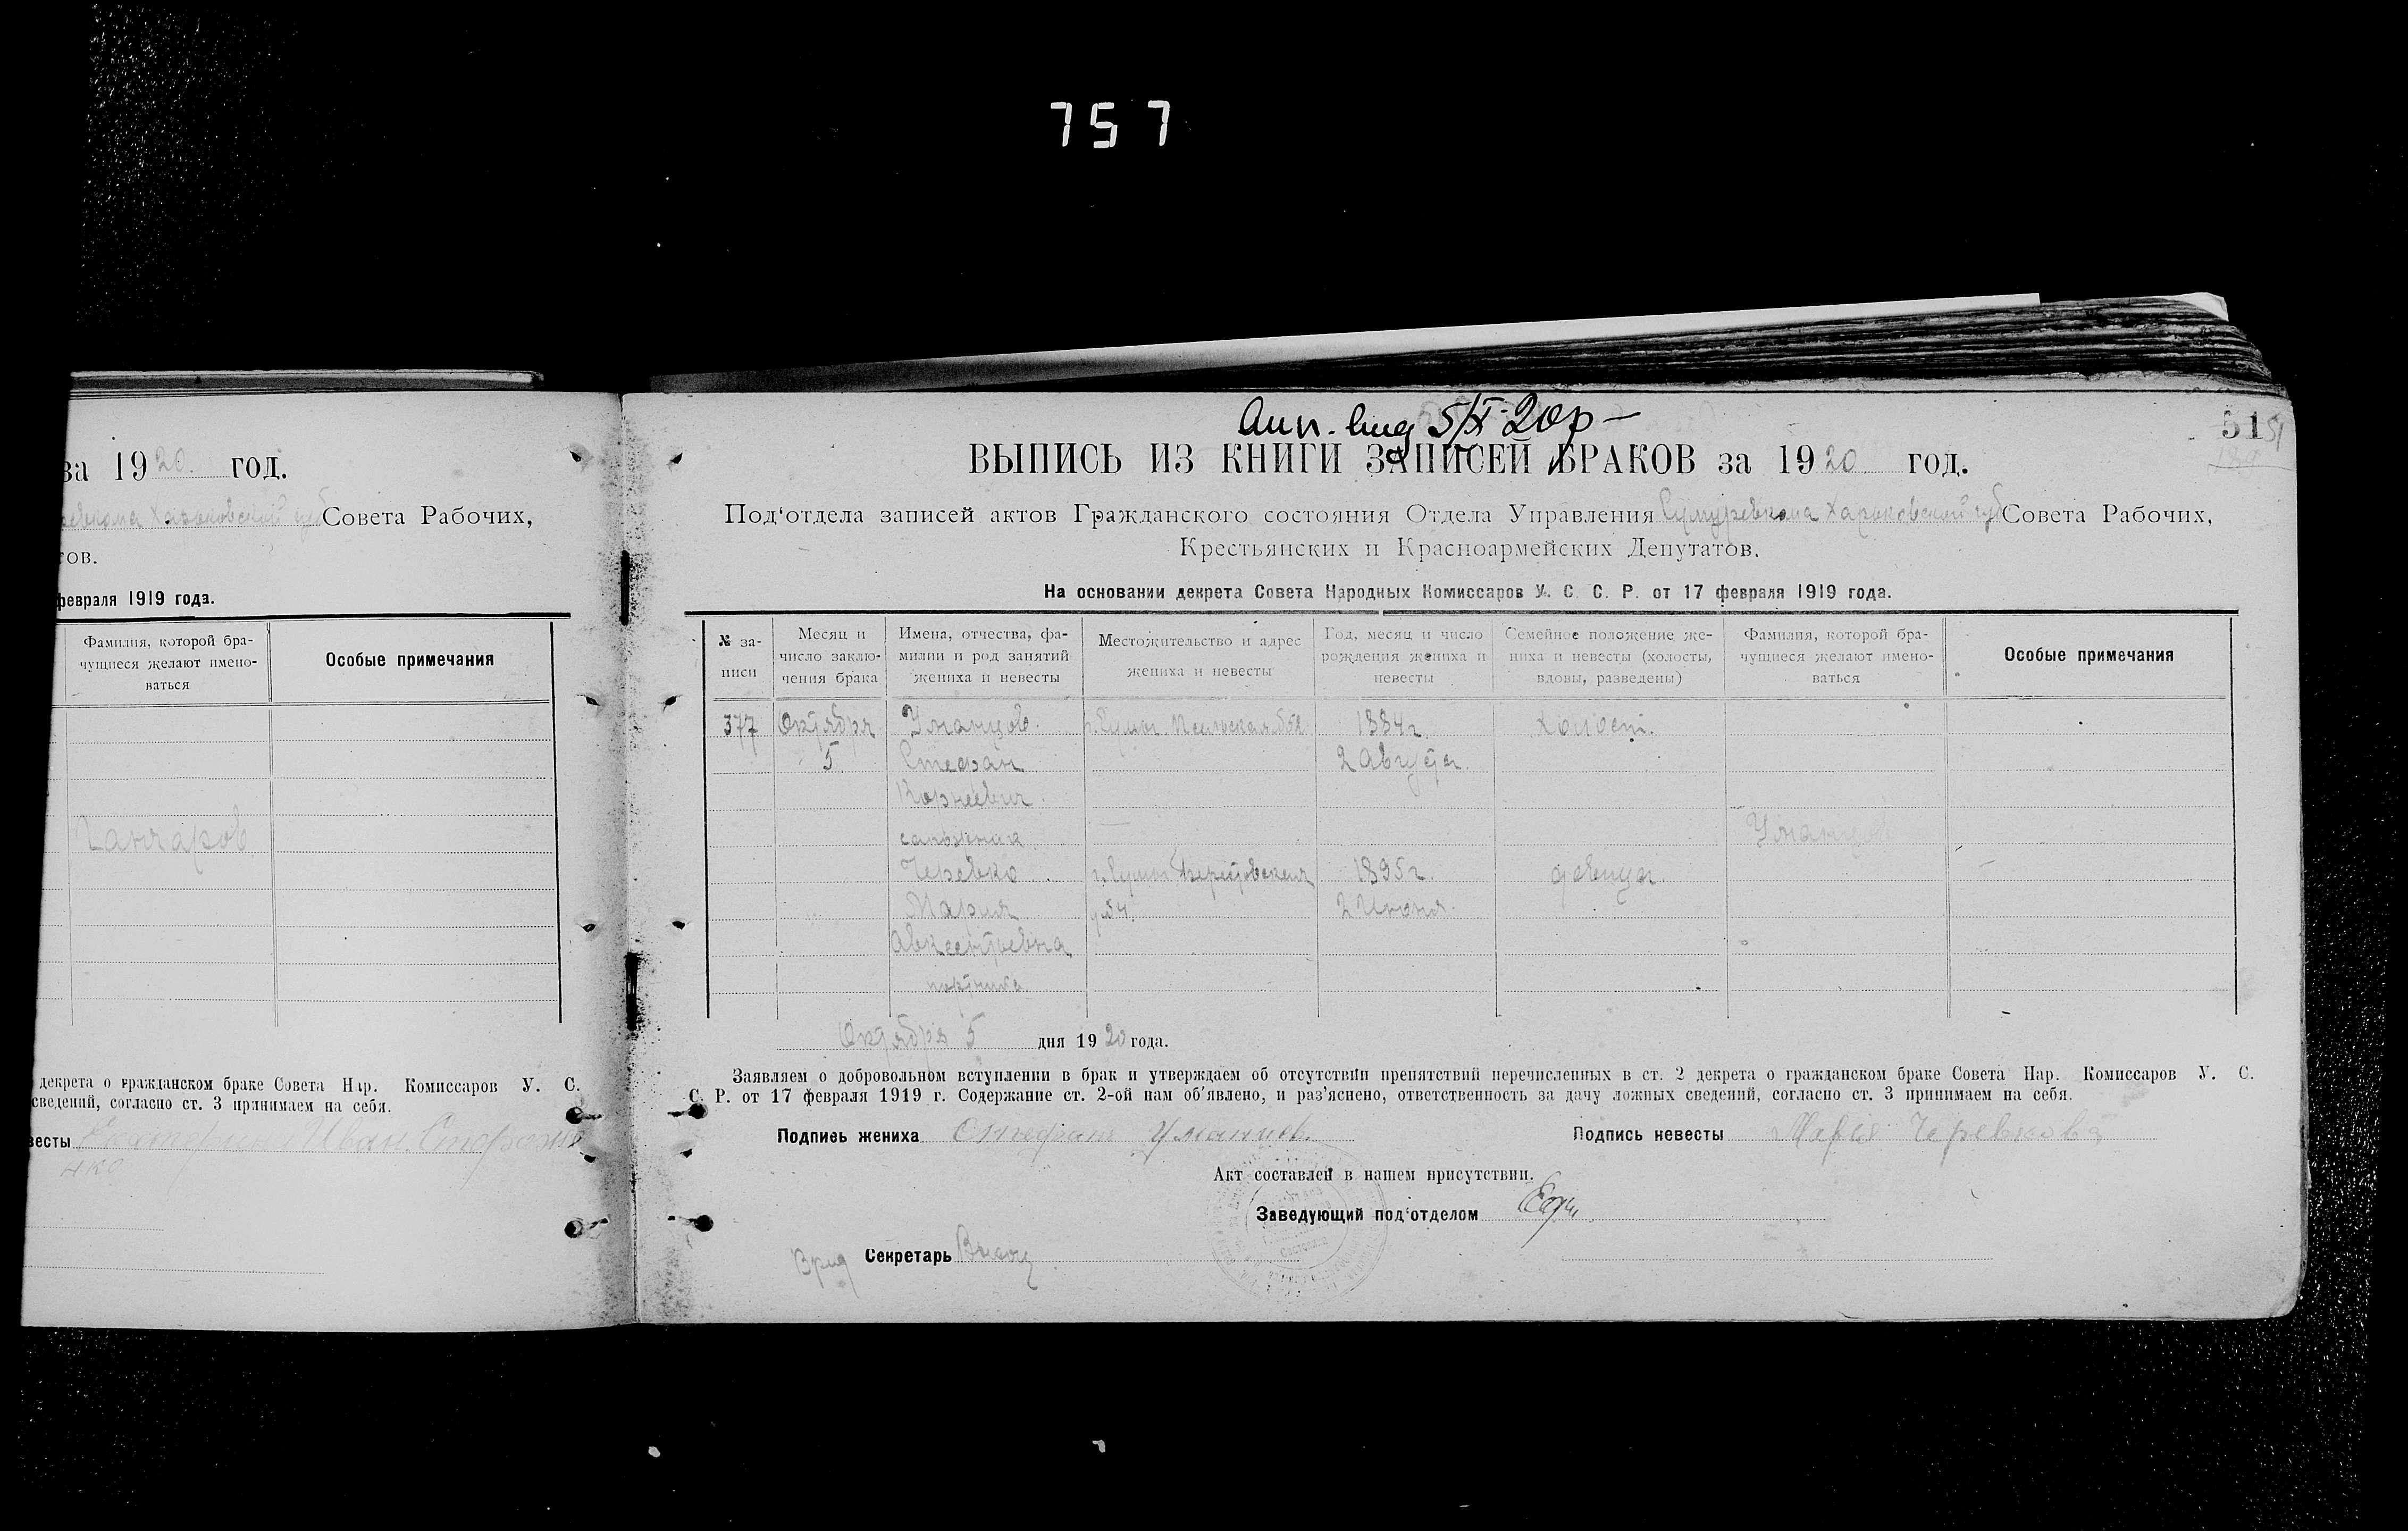 757
за 1920 год.
Харьковской губ Совета Рабочих,
тов.
февраля 1919 года.
Фамилия, которой бра-
чущиеся желают имено-
ваться
Особые примечания
Ганчаров
декрета о гражданском браке Совета Нар. Комиссаров У. С.
сведений, согласно ст. 3 принимаем на себя.
весты Иван.
5/X 20р
51 51
ВЫПИСЬ ИЗ КНИГИ ЗАПИСЕЙ БРАКОВ за 1920 год.
Под‘отдела записей актов Гражданского состояния Отдела Управления Сумуревкома Харьковской губ Совета Рабочих,
Крестьянских и Красноармейских Депутатов.
На основании декрета Совета Народных Комиссаров У. С. С. Р. от 17 февраля 1919 года.
№ за-
писи
Месяц и
число заклю-
чения брака
Имена, отчества, фа-
милии и род занятий
жениха и невесты
Местожительство и адрес
жениха и невесты
Год, месяц и число
рождения жениха и
невесты
Семейное положение же-
ниха и невесты (холосты,
вдовы, разведены)
Фамилия, которой бра-
чущиеся желают имено-
ваться
Особые примечания
377 Октября Уманцов г. Сумы 1884г холост.
5 Стефан 2 Августа
Корнеевич
сапожник Уманцов
Черевко г. Сумы 1895г. девица
Мария 2 Июня
Авксентьевна
портниха
Октября 5 дня 1920 года.
Заявляем о добровольном вступлении в брак и утверждаем об отсутствии препятствий перечисленных в ст. 2 декрета о гражданском браке Совета Нар. Комиссаров У. С.
С. Р. от 17 февраля 1919 г. Содержание ст. 2-ой нам об‘явлено, и раз‘яснено, ответственность за дачу ложных сведений, согласно ст. 3 принимаем на себя.
Подпись жениха Стефан Уманцев. Подпись невесты Мария Черевкова
Акт составлен в нашем присутствии.
Заведующий под‘отделом
Врид Секретарь